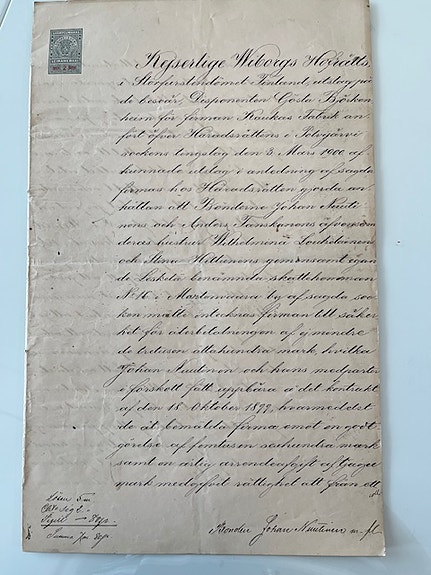 Kejserlige Wiborgs Hofrätts
i Storfurstendömet Finland utslag på
de besvär, Disponenten Gösta Björken
heim för firman Raukas Fabrik an
fört öfver Häradsrättens i
sockens tingslag den 3 Mars 1900 af
kunnade utslag i anledning af sagda
firmas hos Häradsrätten gjorda an
hållan att Bönderne Johan Nuuti
nens och Anders Tanskanens äfvensom
deras hustrur Wilhelmina Loukelainens
och Stina Hettinens gemensamt egan
de benämnda skattehemman
No 16 i by af sagda soc
ken måtte intecknas firman till säker
het för återbetalningen af ej mindre
de tretusen åttahundra mark, hvilka
Johan Nuutinen och hans medparter
i förskott fått uppbära å det kontrakt
af den 18 Oktober 1899, hvarmedelst
de åt bemälda firma emot en godt
görelse af femtusen sexhundra mark
samt en årlig arrendeafgift af tjugo
mark medgifvit rättighet att från ett
Lösen
Summa
Bonden Johan Nuutinen m. fl.